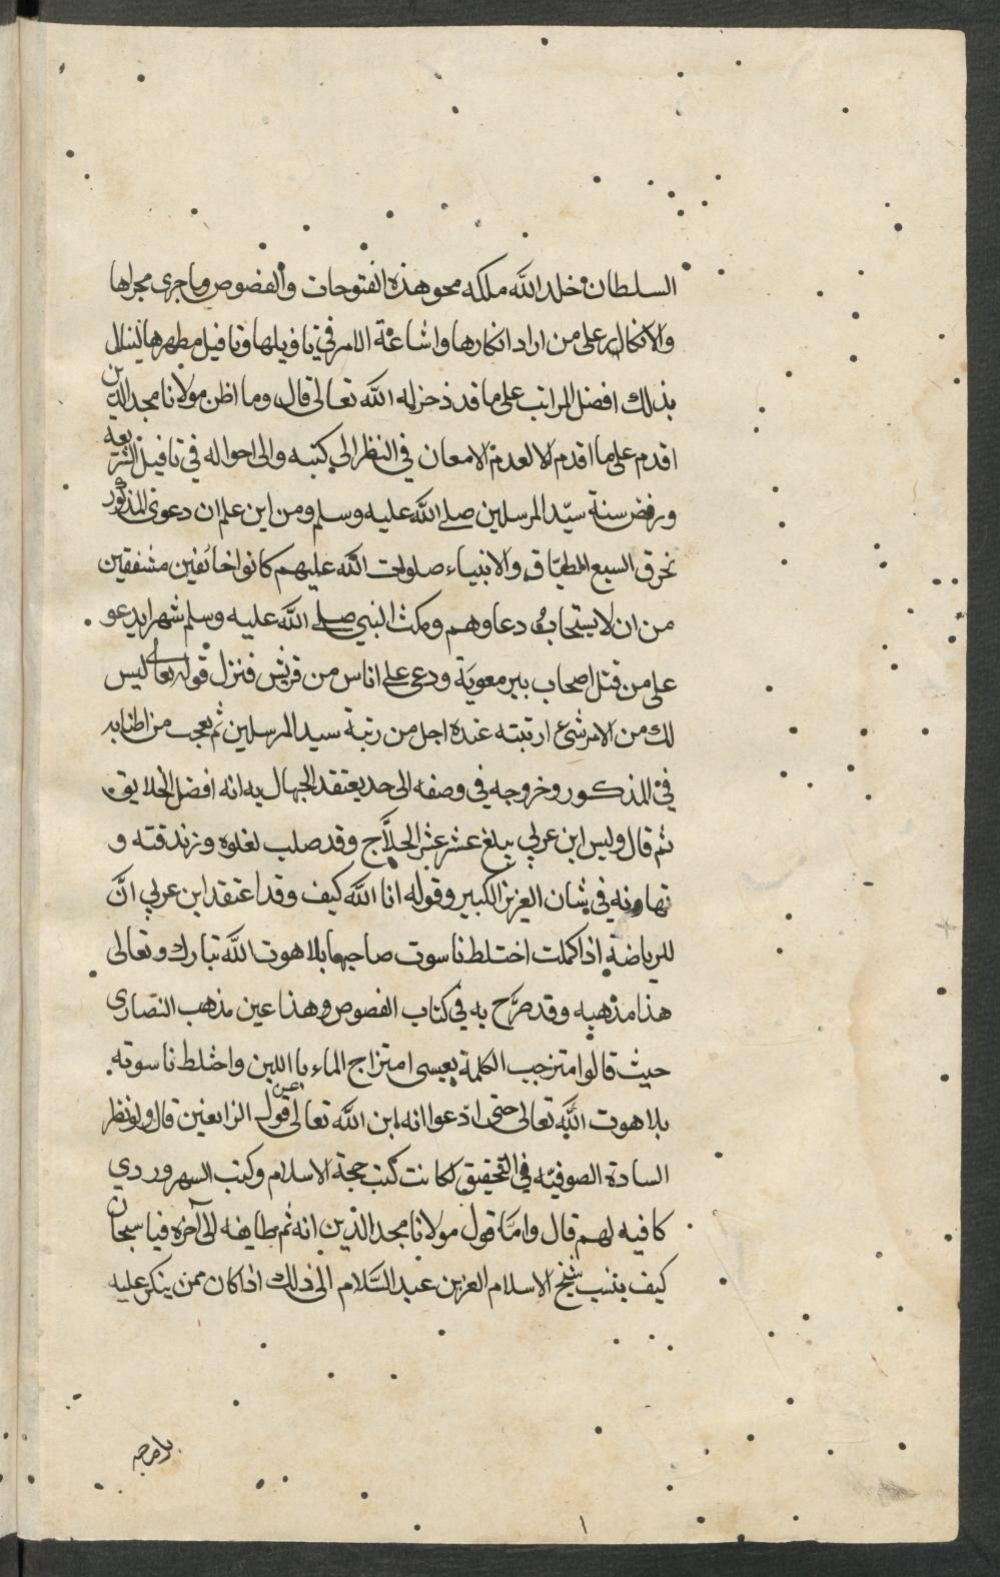 السلطان خلد الله ملكه محو هذه الفتوحات والفصوص وما جرى مجراها
والانكال على من اراد انكارها واشاعة الامر في تاويلها وتافيل مظهرها لينال
بذلك افضل المراتب على ما قد ذخر له الله تعالى قال وما اظن مولانا مجد الدين
اقدم على ما اقدم الا لعدم الامعان في النظر الي كتبه والى احواله في تافيل الشريعه
ورفض سنة سيّد المرسلين صلى الله عليه وسلم ومن اين علم ان دعوى المذكور
تخرق السبع الطباق والانبياء صلوات الله عليهم كانوا خائفين مشفقين
من ان لا يستجاب دعاوهم ومكث النبي صلى الله عليه وسلم شهرا يدعو
على من قتل اصحاب بير معوية ودعى على اناس من قريش فنزل قوله تعالى ليس
لك من الامر شئ ارتبته عنده اجل من رتبة سيد المرسلين ثم تعجب من اطنابه
في المذكور وخروجه في وصفه الى حد يعتقد الجهال به انه افضل الخلايق
ثم قال وليس ابن عربي يبلغ عشر عشر الحلاّج وقد صلب لغلوه وزندقته و
تهاونه في شان العزيز الكبير وقوله انا الله كيف وقد اعتقد ابن عربي انّ
للرياضة اذا كملت اختلط ناسوت صاحبها بلاهوت الله تبارك وتعالى
هذا مذهبه وقد صرّح به في كتاب الفصوص وهذا عين مذهب النصارى
حيث قالوا امتزجب الكلمة بعيسى امتزاج الماء بااللبن واختلط ناسوته
بلاهوت الله تعالى حتى ادعوا انه ابن الله تعالى عن قول الزايغين قال ولو نظر
السادة الصوفيّه في التحقيق لكانت كتب حجة الاسلام وكتب السهروردي
كافيه لهم قال وامّا قول مولانا مجد الدين انه ثم طايفه الى آخره فيا سبحان
كيف ينسب شيخ الاسلام العز بن عبد السّلام الى ذلك اذا كان ممن ينكر عليه